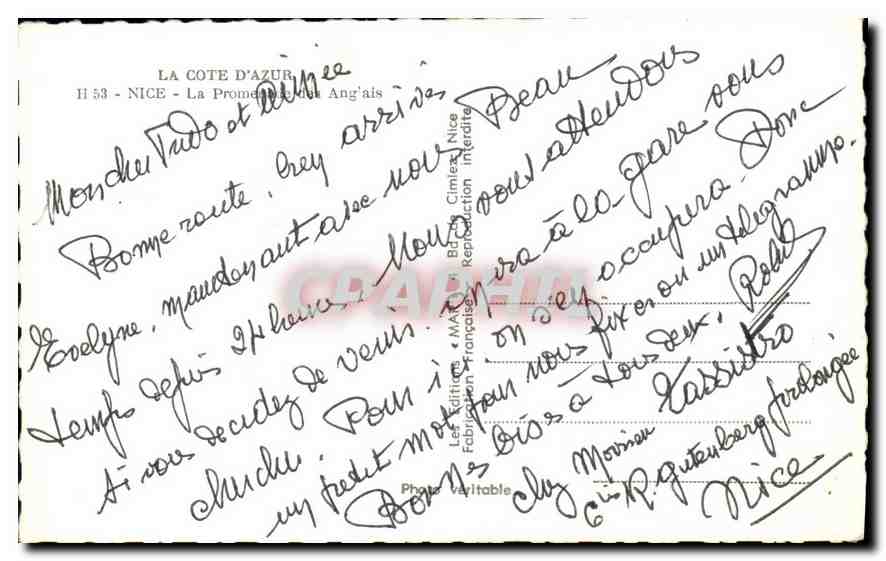 LA COTE D'AZUR
H 53 - NICE - La Promenade des Ang'ais
Mon cher Tudo et aimée
Bonne route, bien arrivés
Evelyne, maintenant avec nous Beau
temps depuis 24 heures. Nous vous attendons
si vous decidez de venir. on ira à la gare vous
chercher. Pour ici on s'en occupera. Donc
un petit mot pour nous fixer ou un télégramme.
Bonnes bises à tous deux. Robert
chez Monsieur Tassistro
6 bis R. gutenberg prolongée
Nice
Les Editions « MAR Bd du Cimiez, Nice
Fabrication Française - Reproduction interdite
Photo véritable
CPAPHIL